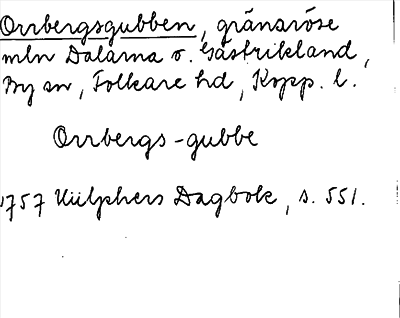 Orrbergsgubben, gränsröse
mln Dalarna o. Gästrikland,
By sn, Folkare hd, Kopp. l.
Orrbergs-gubbe
1757 Hülphers Dagbok, s. 551.